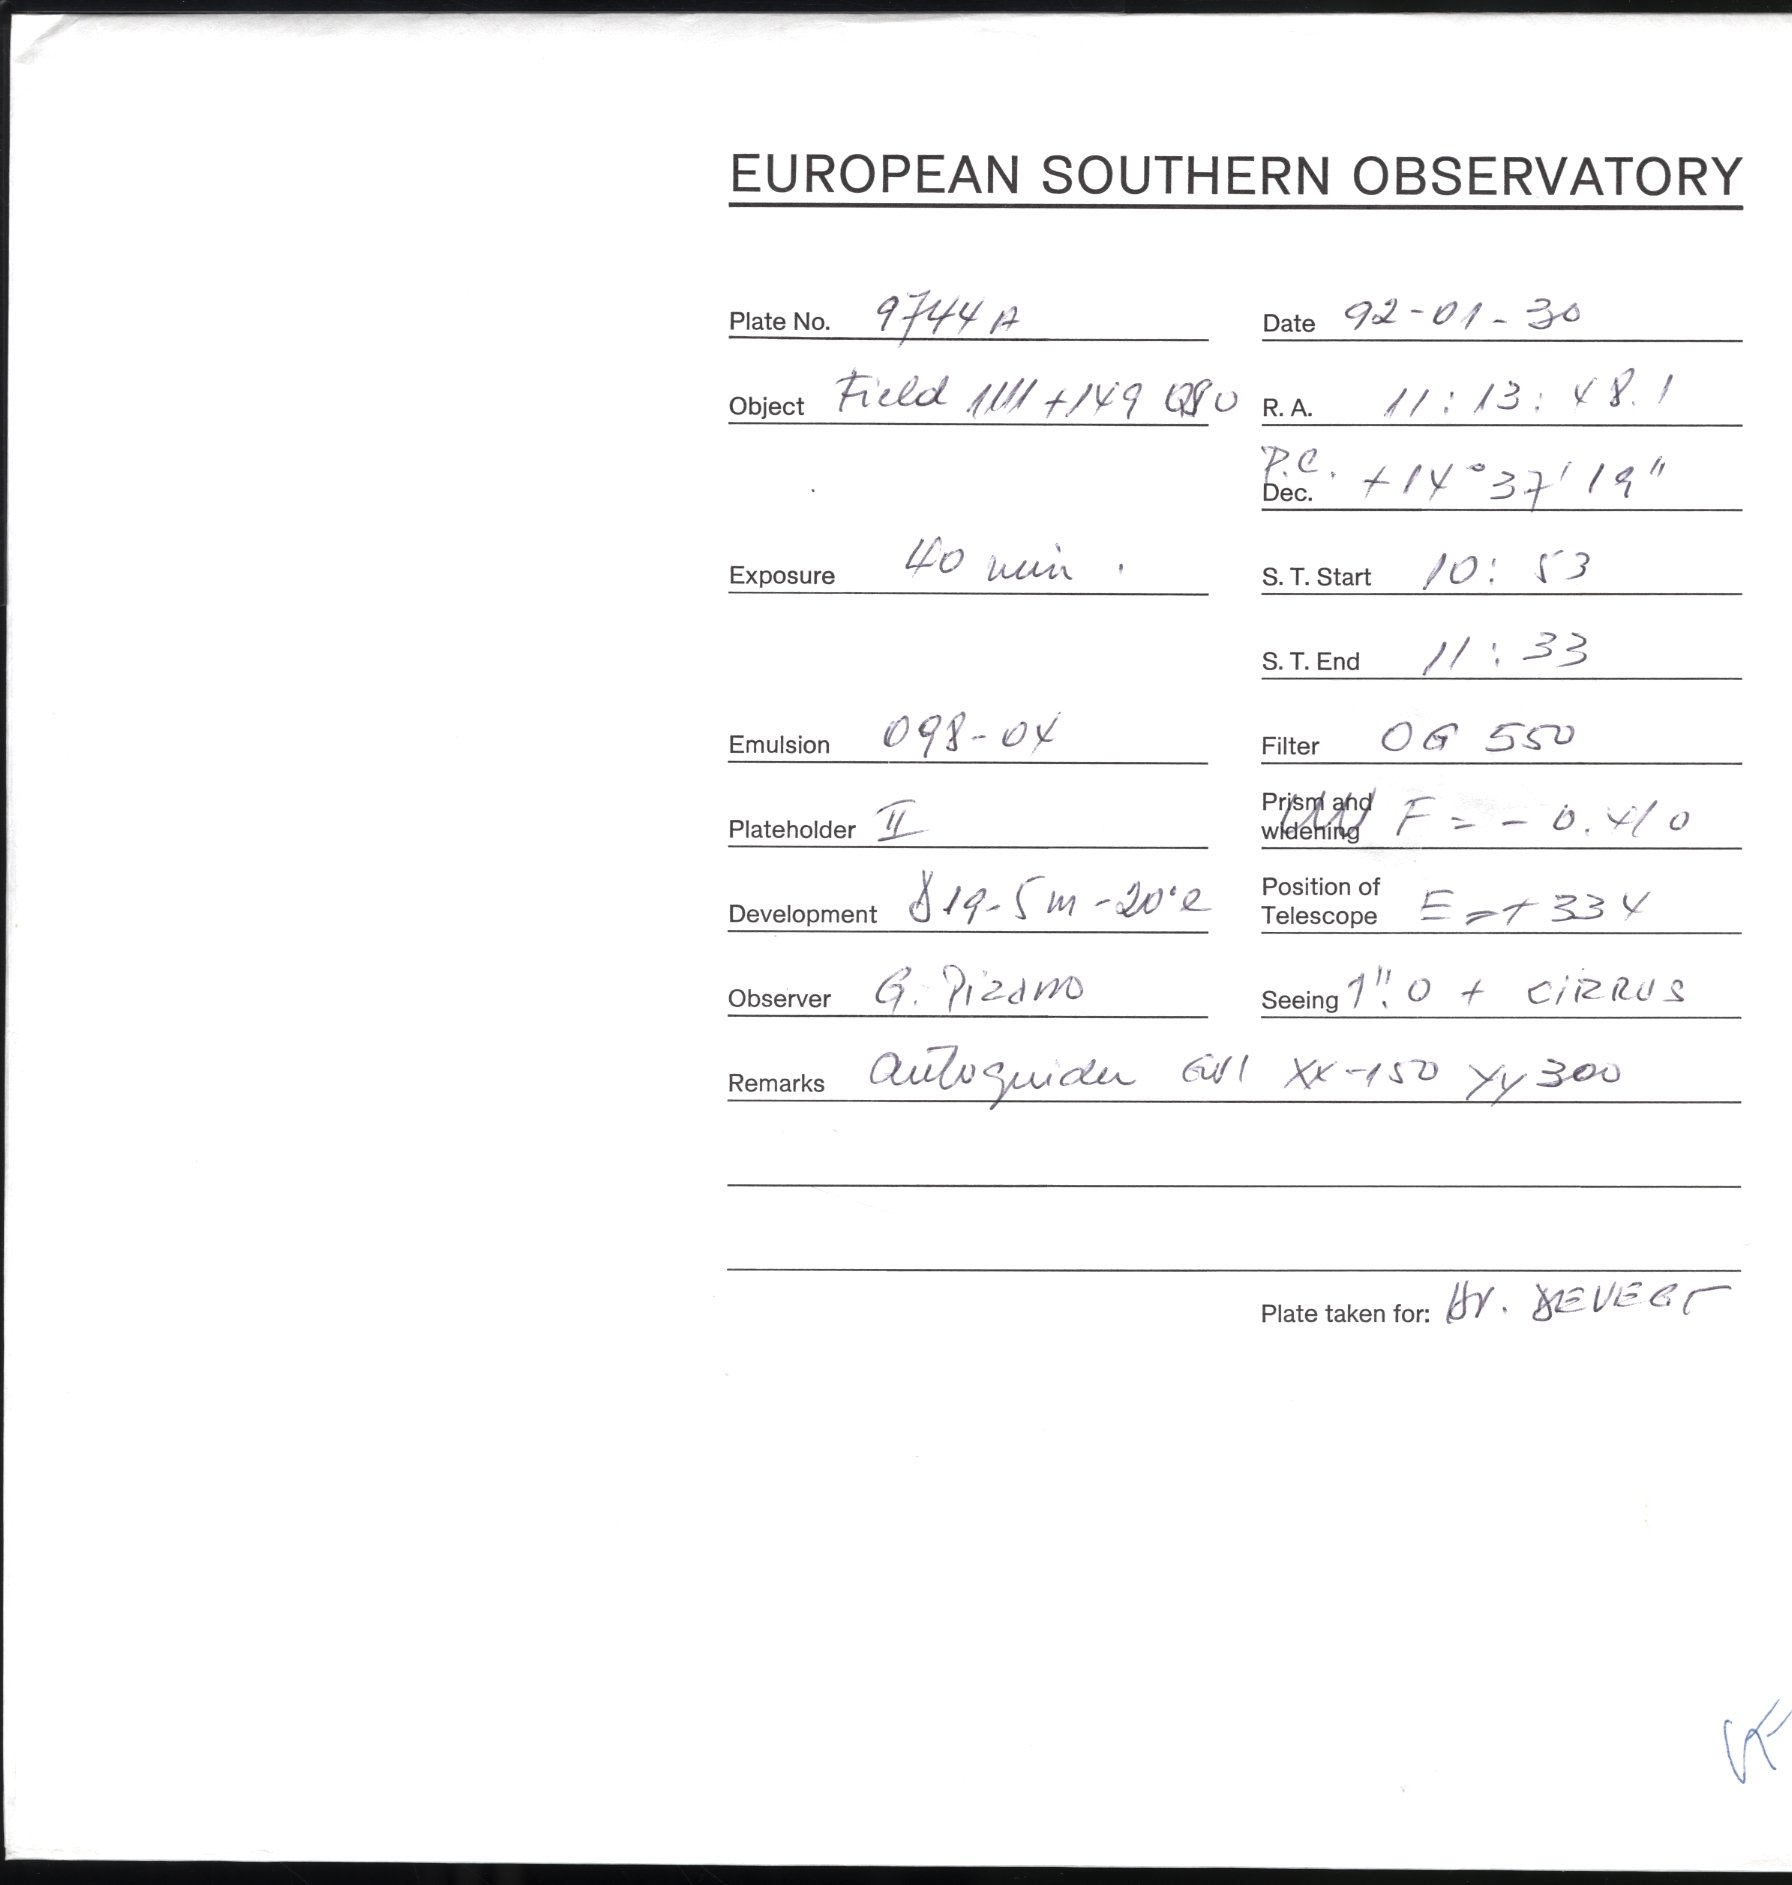 EUROPEAN SOUTHERN OBSERVATORY
Plate No. 9744 A Date 92-01-30
Object Field 1111+149 QSO R. A. 11:13:48.1
P.C.
Dec. +14°37'19"
Exposure 40 min. S. T. Start 10:53
S. T. End 11:33
Emulsion 098-04 Filter OG 550
Plateholder II Prism and widening F = - 0.410
Development D19-5m-20°C Position of Telescope E = + 334
Observer G. Pizarro Seeing 1".0 + CIRRUS
Remarks Autoguider XX-150 YY 300
Plate taken for: Dr. DEVEGT